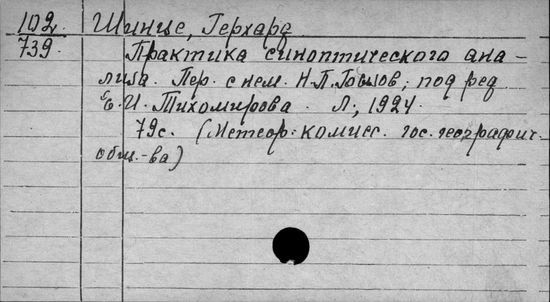 102. Шинце, Герхард
739. Практика синоптического ана-
лиза. Пер. с нем. Н.П. под ред
Е.И. Тихомирова. Л., 1924.
79с. (Метеор. комисс. гос. географич.
общ-ва)